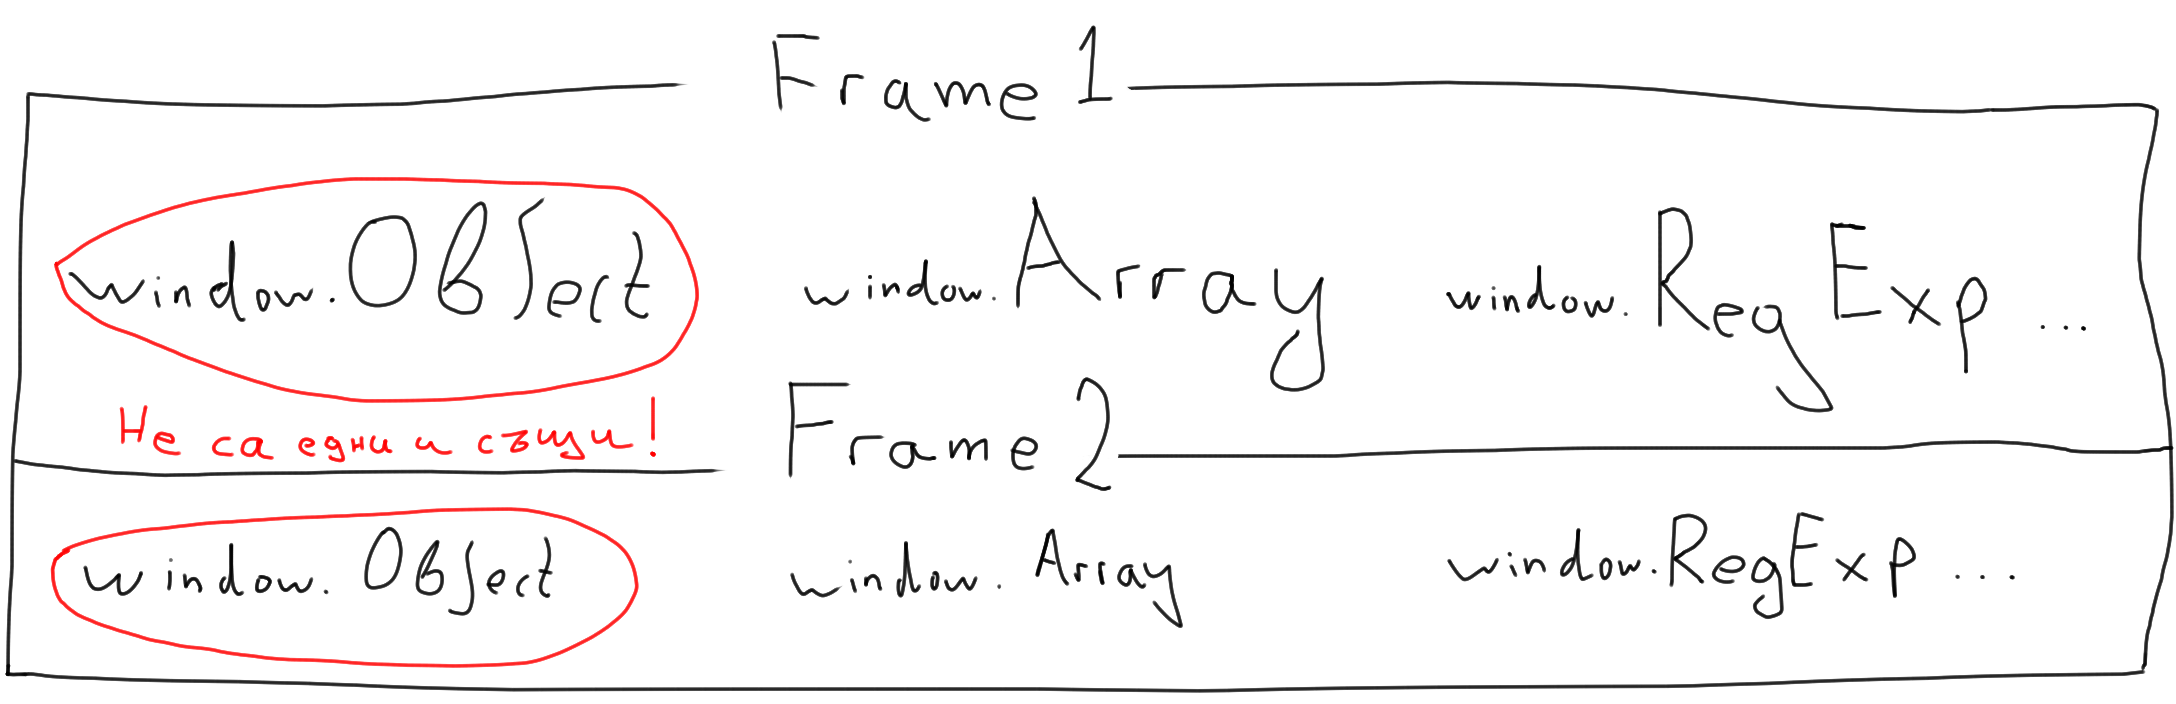 Frame 1
window.Object window.Array window.RegExp ...
Не са едни и същи!
Frame 2
window.Object window.Array window.RegExp ...